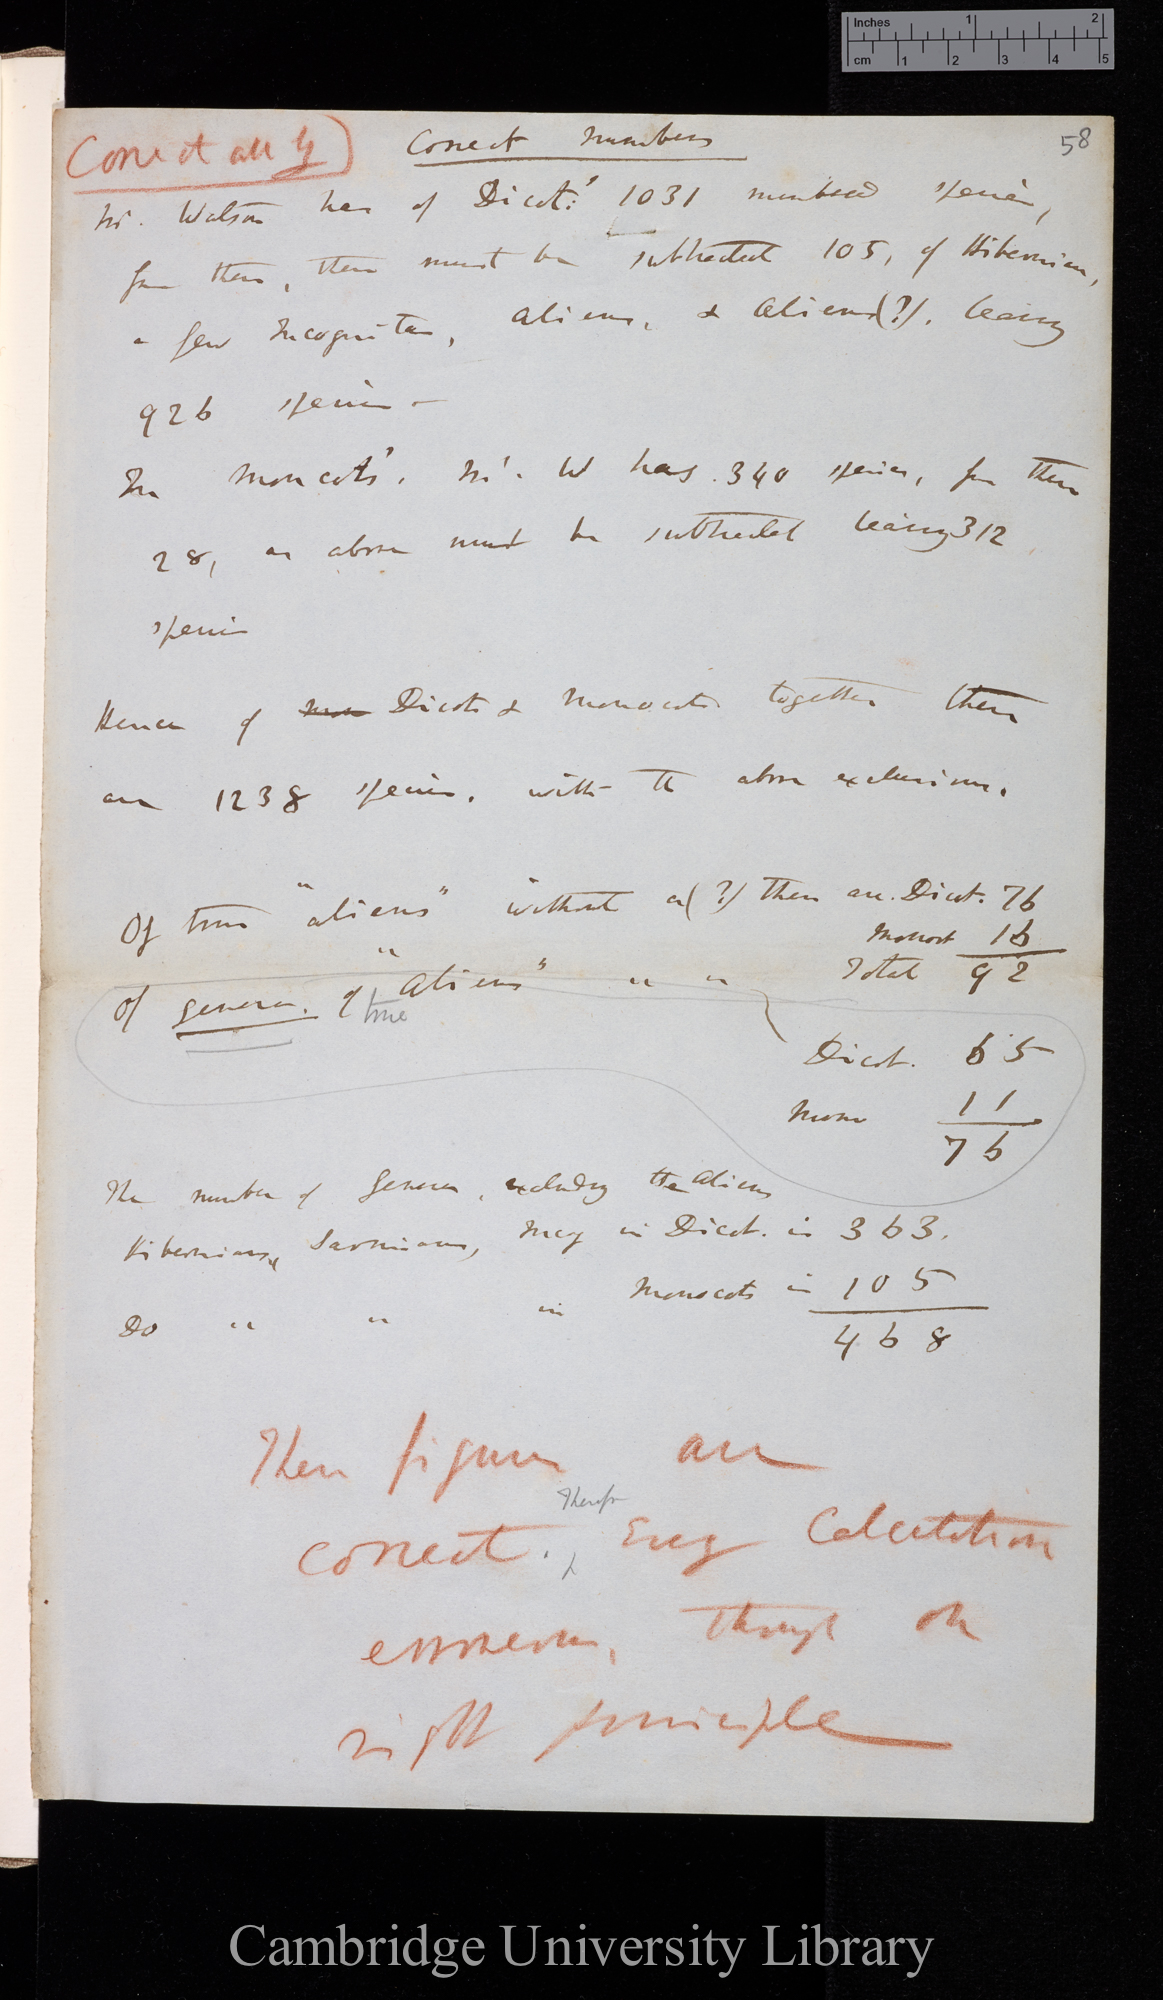 Inches 1 2
cm 1 2 3 4 5
58
Correct all by) Correct numbers
Mr. Watson has of Dicots' 1031 numbered species,
from these, there must be subtracted 105, of Hibernian,
a few Incognitae, aliens, & Aliens(?), leaving
926 species —
In Moncots'. Mr. W has 340 species, from these
28, as above must be subtracted leaving 312
species
Hence of Mon Dicots & Monocots together there
are 1238 species, with the above exclusions.
Of true "aliens" without a (?) there are. Dicot. 76
Monocot 16
Total 92
Of genera, of true "Aliens" " "
Dicot. 65
Mono 11
76
The number of Genera, excluding the Aliens
Hibernians, Sarnians, Incog in Dicot. is 363.
Do " " in Monocots is 105
468
These figures are
correct. Therefore Every Calculation
erroneous, though on
right principle
Cambridge University Library